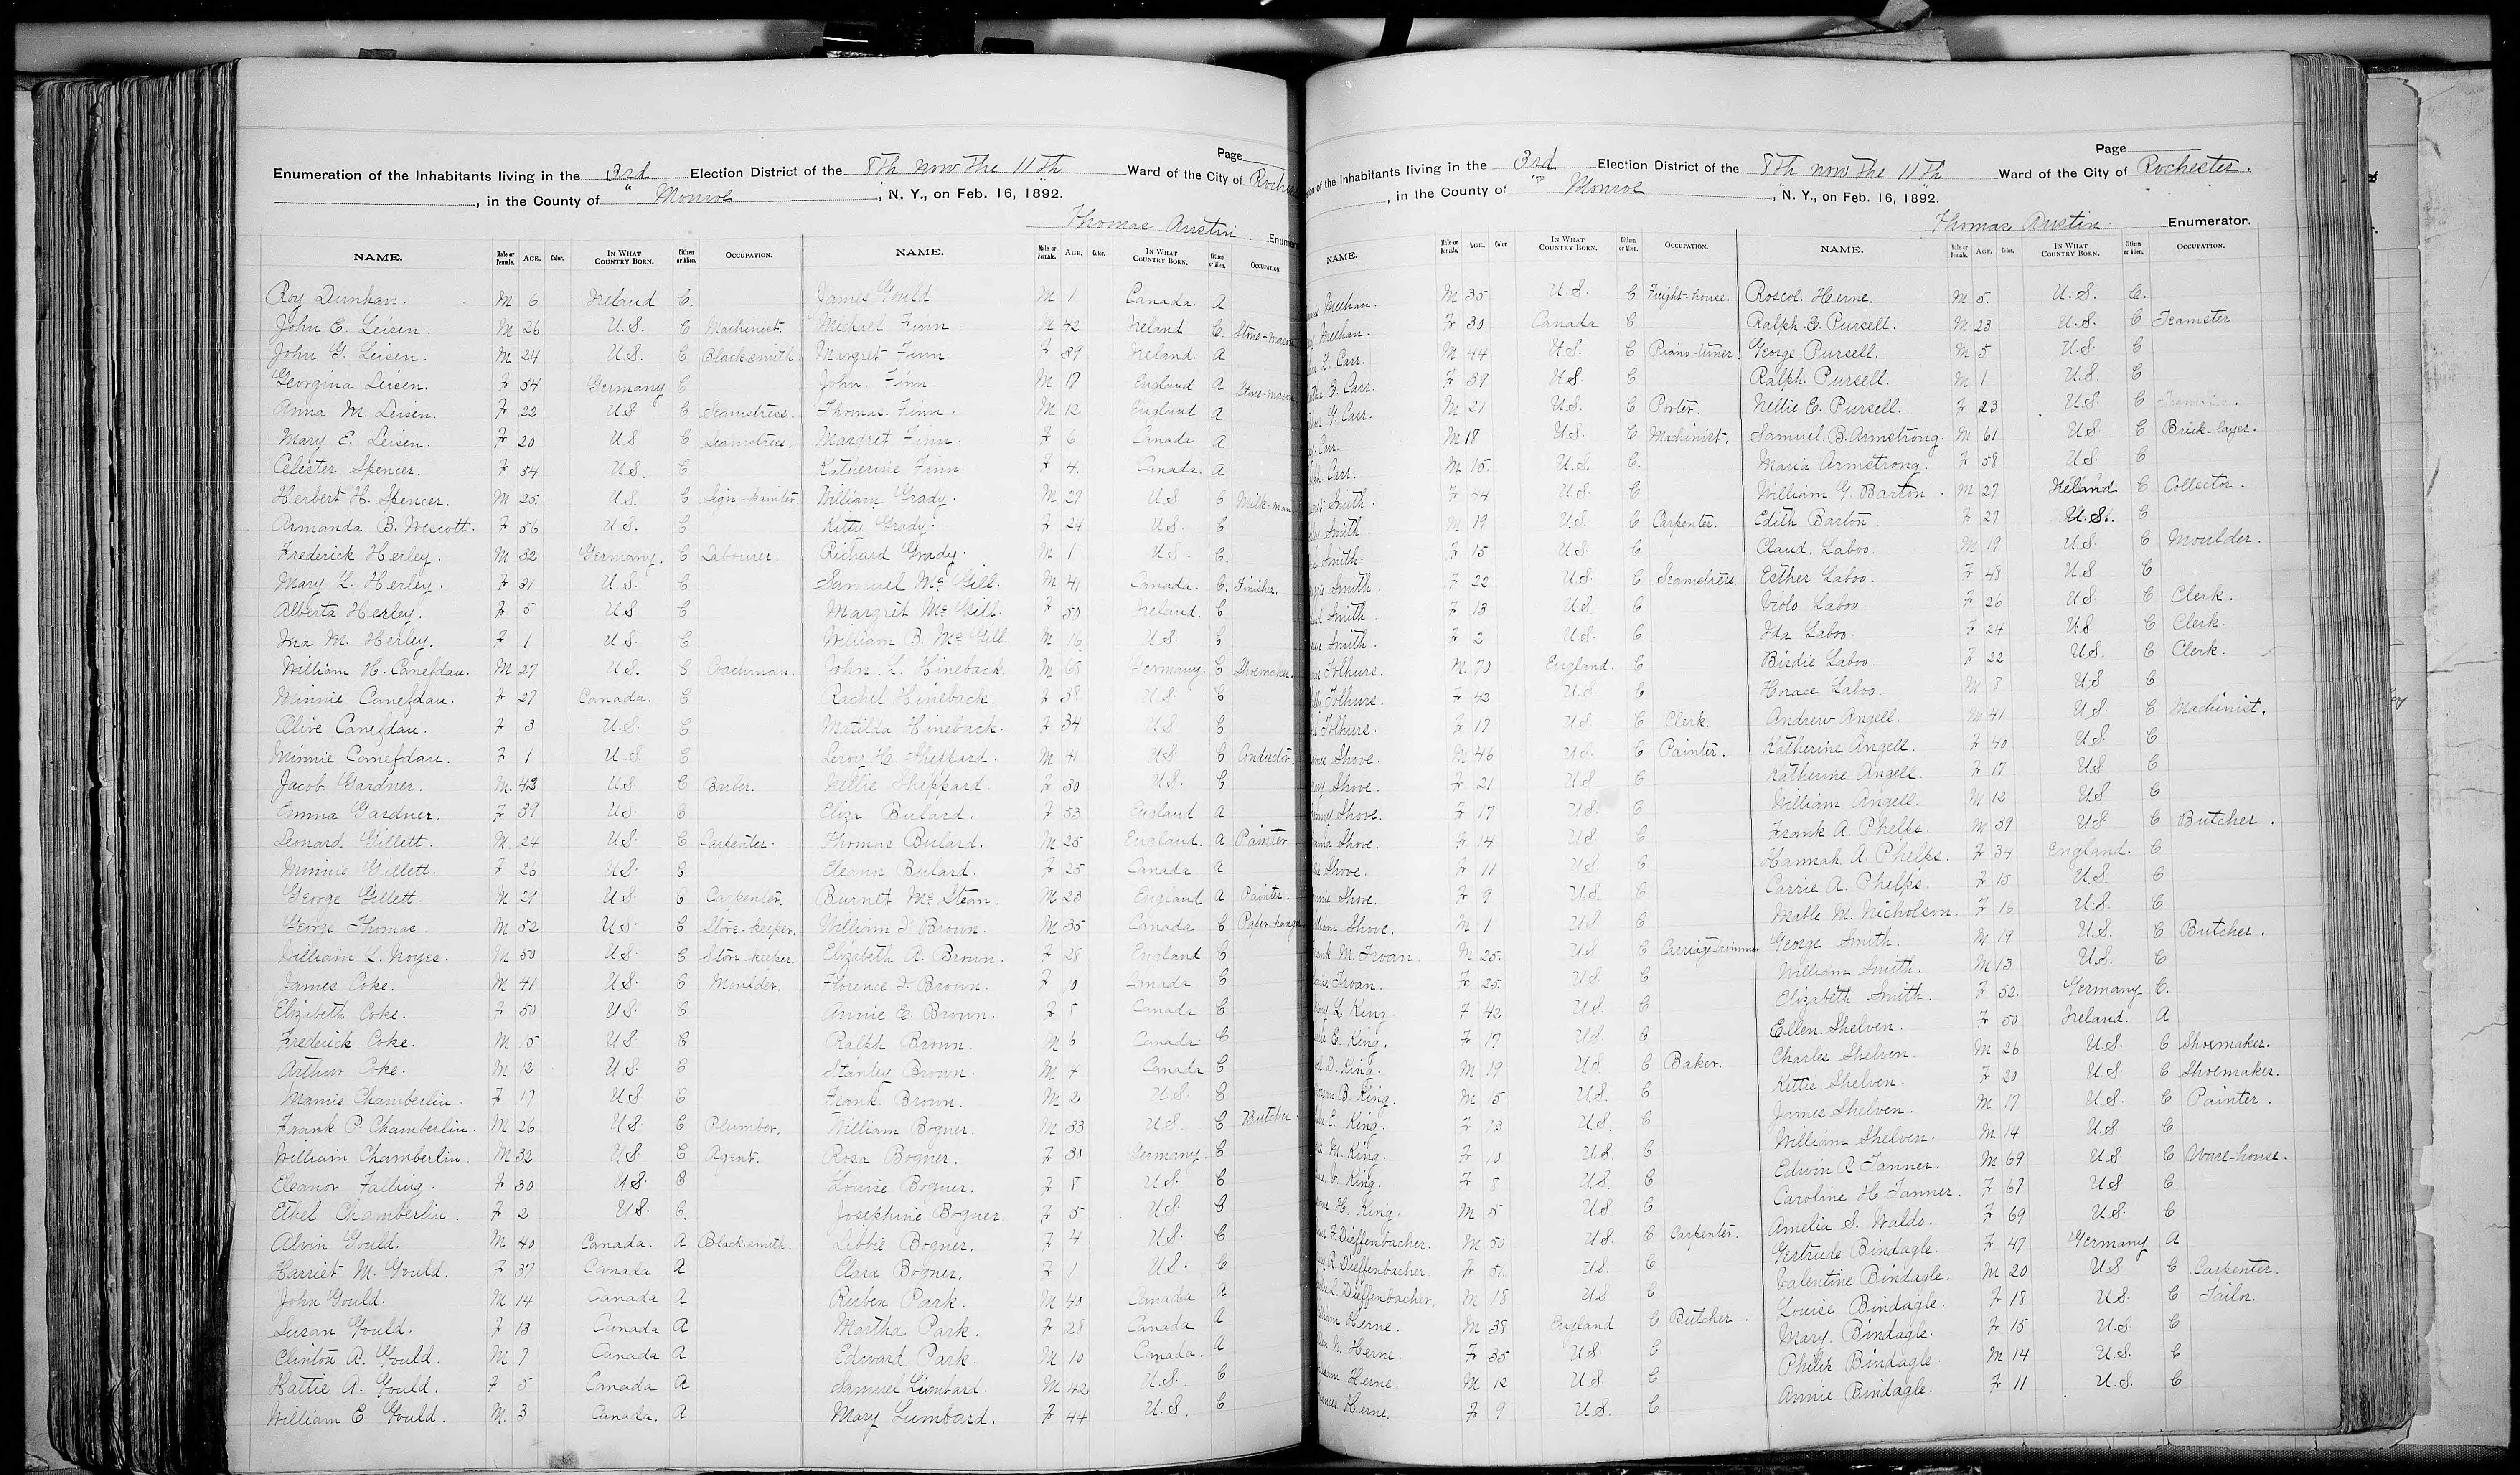 Page
Enumeration of the Inhabitants living in the 3rd Election District of the 8th now the 11th Ward of the City of
, in the County of Monroe, N. Y., on Feb. 16, 1892.
Thomas Austin.
NAME. Male or Female. AGE. Color. IN WHAT COUNTRY BORN. Citizen or Alien. OCCUPATION.
Roy Dunhan. M 6 Ireland C.
John E. Leisen. M 26 U.S. C Machinist.
John G. Leisen. M 24 U.S. C Blacksmith.
Georgina Leisen. F 54 Germany C
Anna M. Leisen. F 22 U.S C Seamstress.
Mary E. Leisen. F 20 U.S C Seamstress.
Celester Spencer. F 54 U.S. C
Herbert H. Spencer. M 25 U.S. C Sign-painter.
Armanda B. Wescott. F 56 U.S. C
Frederick Herley. M 32 Germany. C Labourer.
Mary L. Herley. F 31 U.S. C
Alberta Herley. F 5 U.S C
Ina M. Herley. F 1 U.S C
William H. Canefdau. M 27 U.S. C Coachman.
Minnie Canefdau. F 27 Canada. C
Olive Canefdau. F 3 U.S. C
Minnie Canefdau. F 1 U.S. C
Jacob Gardner. M. 43 U.S C Barber.
Emma Gardner. F 39 U.S. C
Leonard Gillett. M 24 U.S. C Carpenter.
Minnie Gillett. F 26 U.S. C
George Gillett. M 29 U.S. C Carpenter.
George Thomas. M 52 U.S. C Store-keeper.
William L. Noyes. M 50 U.S. C Store-keeper.
James Coke. M 41 U.S. C Moulder.
Elizabeth Coke. F 50 U.S. C
Frederick Coke. M 15 U.S C
Arthur Coke. M 12 U.S. C
Mamie Chamberlin. F 17 U.S. C
Frank P. Chamberlin. M 26 U.S. C Plumber.
William Chamberlin. M 32 U.S C Agent.
Eleanor Falling. F 30 U.S. C
Ethel Chamberlin. F 2 U.S. C.
Alvin Gould. M 40 Canada. A Blacksmith.
Harriet M. Gould. F 37 Canada A
John Gould. M 14 Canada A
Susan Gould. F 13 Canada A
Clinton A. Gould. M 7 Canada A
Hattie A. Gould. F 5 Canada A
William E. Gould. M. 3 Canada. A
NAME. Male or Female. AGE. Color. IN WHAT COUNTRY BORN. Citizen or Alien. OCCUPATION.
James Gould M 1 Canada. A
Michael Finn M 42 Ireland C. Stone-mason
Margret Finn. F 39 Ireland. A
John. Finn M 17 England A Stone-mason
Thomas. Finn. M 12 England A
Margret Finn F 6 Canada A
Katherine Finn F 4. Canada. A
William Grady. M 27 U.S C Milk-man
Kitty Grady. F 24 U.S. C
Richard Grady. M 1 U.S. C.
Samuel McGill. M 41 Canada. C. Finisher.
Margret McGill. F 50 Ireland. C
William B. McGill. M 16 U.S. C
John. L. Hineback. M 68 Germany. C Shoemaker.
Rachel Hineback. F 38 U.S. C
Matilda Hineback. F 34 U.S C
Leroy H. Sheppard. M 41 U.S C Conductor.
Nellie Sheppard. F 30 U.S. C
Eliza Bulard. F 53 England A
Thomas Bulard. M 25 England. A Painter
Eleanor Bulard. F 25 Canada A
Burnet McStean. M 23 England A Painter.
William J Brown. M 35 Canada C
Elizabeth A. Brown. F 28 England C
Florence J. Brown. F 10 Canada C
Annie E. Brown. F 8 Canada C
Ralph Brown. M 6 Canada C
Stanley Brown. M 4 Canada C
Frank Brown. M 2 U.S. C
William Bogner. M 33 U.S. C Butcher.
Rosa Bogner. F 31 Germany. C
Louise Bogner. F 8 U.S. C
Josephine Bogner. F 5 U.S. C
Libbie Bogner. F 4 U.S. C
Clara Bogner. F 1 U.S. C
Ruben Park. M 40 Canada A
Martha Park. F 28 Canada A
Edward Park. M 10 Canada. A
Samuel Lumbard. M 42 U.S. C
Mary Lumbard. F 44 U.S. C
Page
of the Inhabitants living in the 3rd Election District of the 8th now the 11th Ward of the City of Rochester.
, in the County of Monroe, N. Y., on Feb. 16, 1892.
Thomas Austin. Enumerator.
NAME. Male or Female. AGE. Color. IN WHAT COUNTRY BORN. Citizen or Alien. OCCUPATION.
Meehan. M 35 U.S. C Freight-house.
Meehan. F 30 Canada C
L. Carr. M 44 U.S. C Piano-tuner.
E. Carr. F 39 U.S. C
G. Carr. M 21 U.S. C Porter.
Carr. M 18 U.S. C Machinist.
Carr. M 15. U.S. C.
Smith. F 44 U.S. C
Smith. M 19 U.S. C Carpenter.
Smith. F 15 U.S. C
Smith. F 22 U.S. C Seamstress
Smith. F 13 U.S. C
Smith. F 2 U.S. C
Tolhurs. M. 70 England. C
Tolhurs. F 42 U.S. C
Tolhurs. F 17 U.S C Clerk.
Shove. M 46 U.S C Painter.
Shove. F 21 U.S C
Shove. F 17 U.S. C
Shove. F 14 U.S C
Shove. F 11 U.S. C
Shove. F 9 U.S. C
Shove. M 1 U.S C
M. Troan. M 25. U.S C Carriage-trimmer
Troan. F 25. U.S C
L King. F 42 U.S C
E. King. F 17 U.S. C
D. King. M 19 U.S C Baker.
B. King. M 15 U.S. C
E. King. F 13 U.S. C
M. King. F 10 U.S. C
King. F 8 U.S. C
H. King. M 5 U.S C
F. Dieffenbacher. M 50 U.S. C Carpenter.
R. Dieffenbacher. F 51. U.S. C
L. Dieffenbacher. M 18 U.S C
Herne. M 38 England. C Butcher.
N. Herne. F 35 U.S C
Herne. M 12 U.S C
Herne. F 9 U.S. C
NAME. Male or Female. AGE. Color. IN WHAT COUNTRY BORN. Citizen or Alien. OCCUPATION.
Roscoe. Herne. M 5. U.S. C.
Ralph. G. Pursell. M 23 U.S. C Teamster
George Pursell. M 5 U.S. C
Ralph. Pursell. M 1 U.S. C
Nellie E. Pursell. F 23 U.S C
Samuel. B. Armstrong. M 61 U.S C Brick-layer.
Maria Armstrong. F 58 U.S C
William G. Barton. M 27 Ireland C Collector.
Edith Barton. F 27 U.S. C
Claud. Laboo. M 19 U.S C Moulder.
Esther Laboo. F 48 U.S C
Violo Laboo F 26 U.S C Clerk.
Ida Laboo. F 24 U.S. C Clerk.
Birdie Laboo. F 22 U.S. C Clerk.
Horace Laboo. M 8 U.S C
Andrew Angell. M 41 U.S C Machinist.
Katherine Angell. F 40 U.S C
Katherine Angell. F 17 U.S C
William Angell. M 12 U.S C
Frank A. Phelps. M 39 U.S. C Butcher.
Hannah A. Phelps. F 34 England. C
Carrie A. Phelps. F 15 U.S. C
Mable M. Nicholson. F 16 U.S. C
George Smith. M 19 U.S. C Butcher.
William Smith. M 13 U.S. C
Elizabeth Smith. F 52. Germany C.
Ellen. Shelven. F 50 Ireland. A
Charles Shelven. M 26 U.S. C Shoemaker.
Kittie Shelven. F 20 U.S. C Shoemaker.
James Shelven. M 17 U.S. C Painter.
William Shelven. M 14 U.S. C
Edwin R Tanner. M 69 U.S C Ware-house.
Caroline H. Tanner. F 67 U.S C
Amelia S. Waldo. F 69 U.S. C
Gertrude Bindagle. F 47 Germany A
Valentine Bindagle. M 20 U.S C Carpenter.
Louise Bindagle. F 18 U.S. C Tailor.
Mary. Bindagle. F 15 U.S. C
Philip Bindagle. M 14 U.S. C
Annie Bindagle. F 11 U.S. C